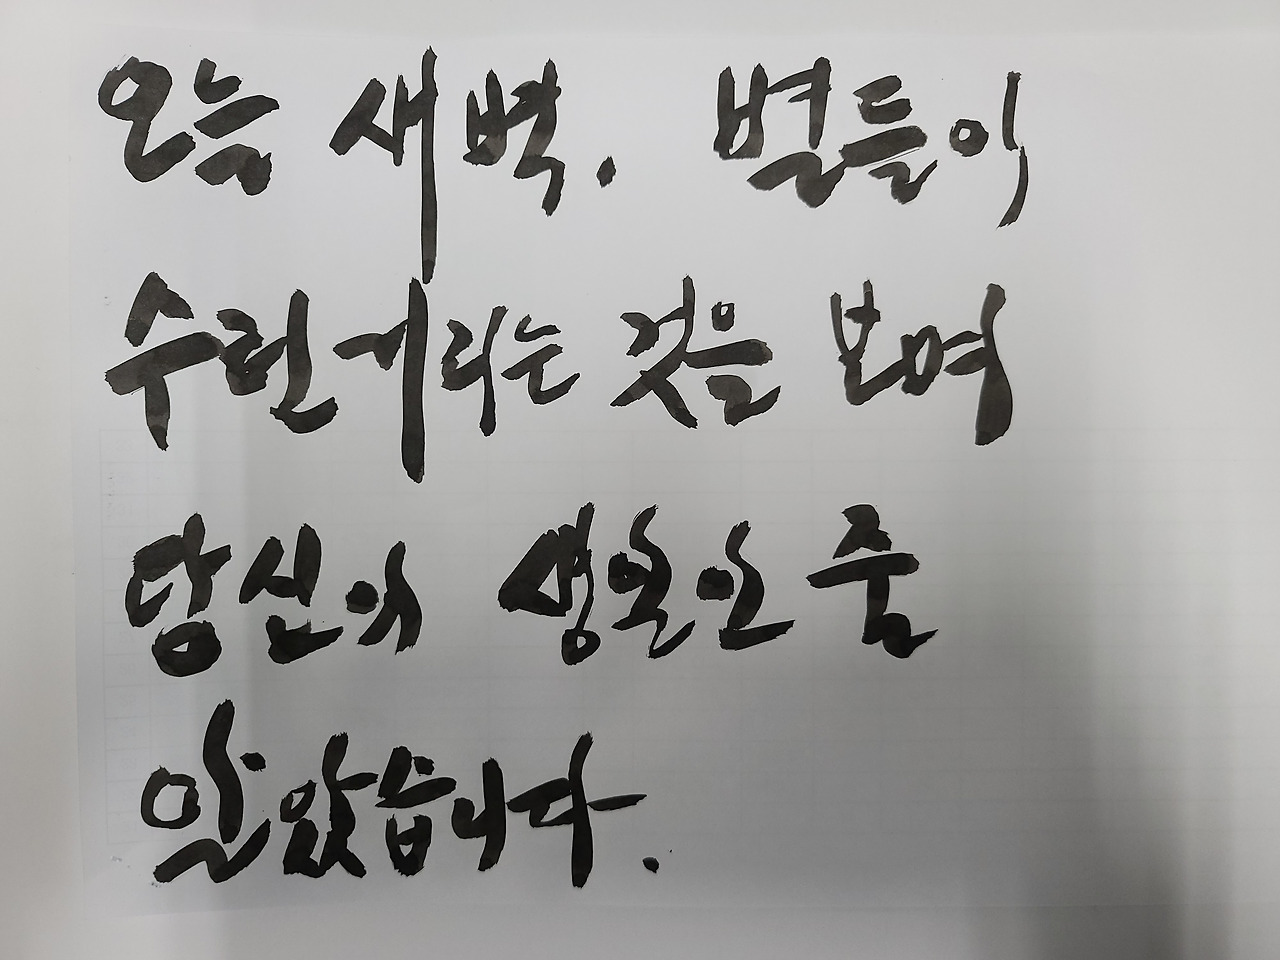 오늘 새벽. 별들이
수런거리는 것을 보며
당신의 생일인 줄
알았습니다.